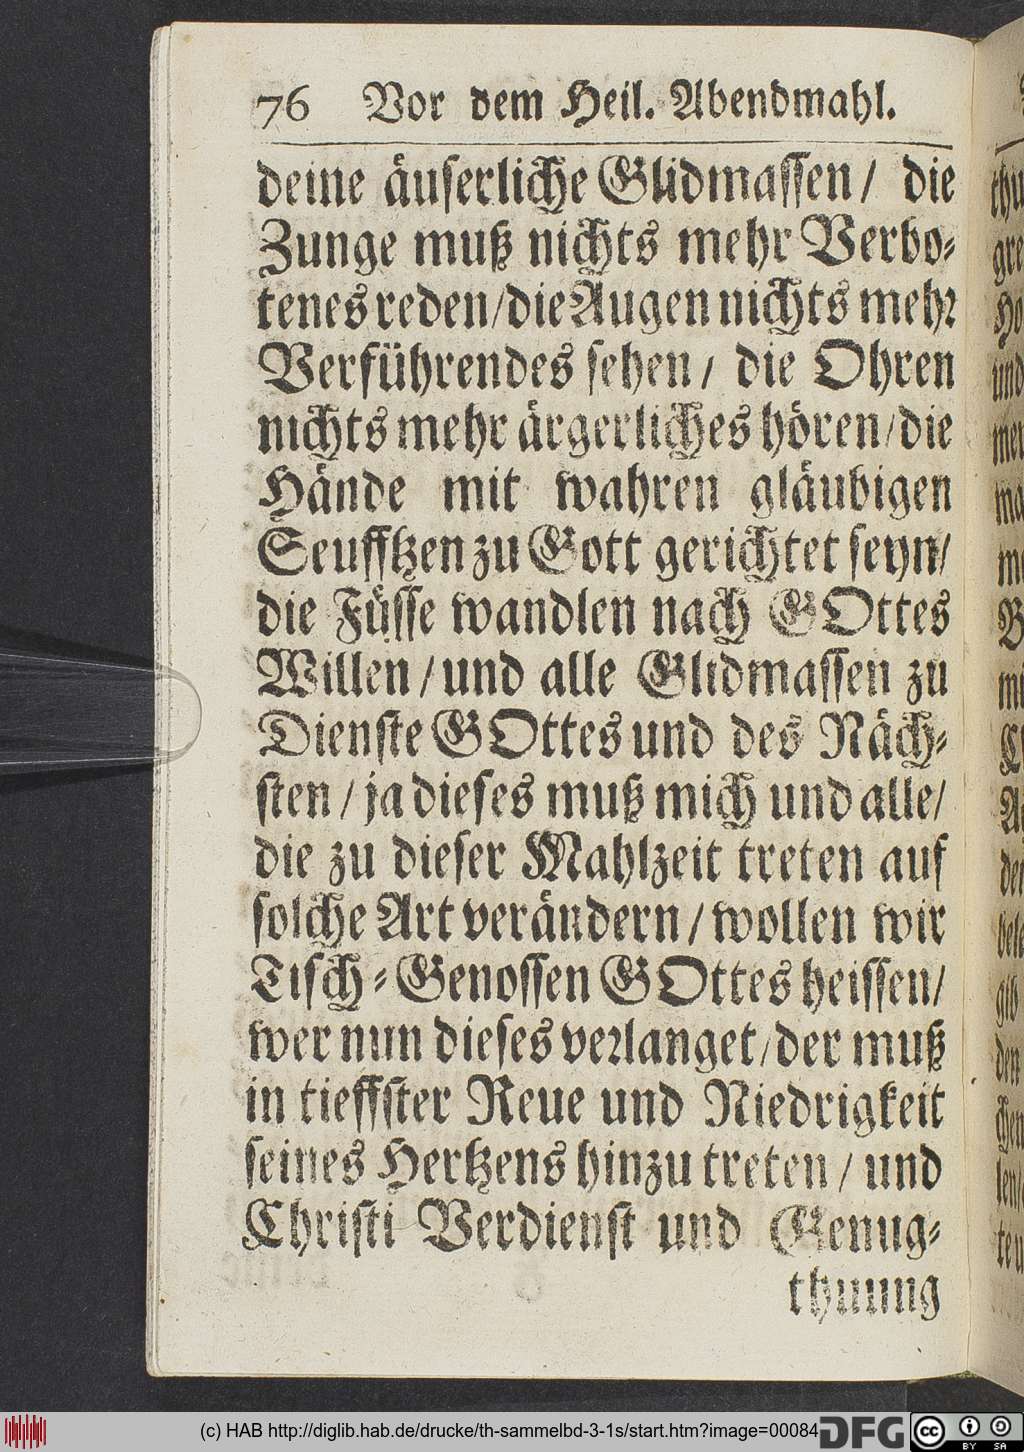 76 Vor dem Heil. Abendmahl.
deine äuserliche Glidmassen/ die
Zunge muß nichts mehr Verbo-
tenes reden/die Augen nichts mehr
Verführendes sehen/ die Ohren
nichts mehr ärgerliches hören/die
Hände mit wahren gläubigen
Seufftzen zu Gott gerichtet seyn/
die Füsse wandlen nach GOttes
Willen/und alle Glidmassen zu
Dienste GOttes und des Näch-
sten/ja dieses muß mich und alle/
die zu dieser Mahlzeit treten auf
solche Art verändern/wollen wir
Tisch-Genossen GOttes heissen/
wer nun dieses verlanget/der muß
in tieffster Reue und Niedrigkeit
seines Hertzens hinzu treten/ und
Christi Verdienst und Genug-
thuung
(c) HAB http://diglib.hab.de/drucke/th-sammelbd-3-1s/start.htm?image=00084
DFG
cc BY SA